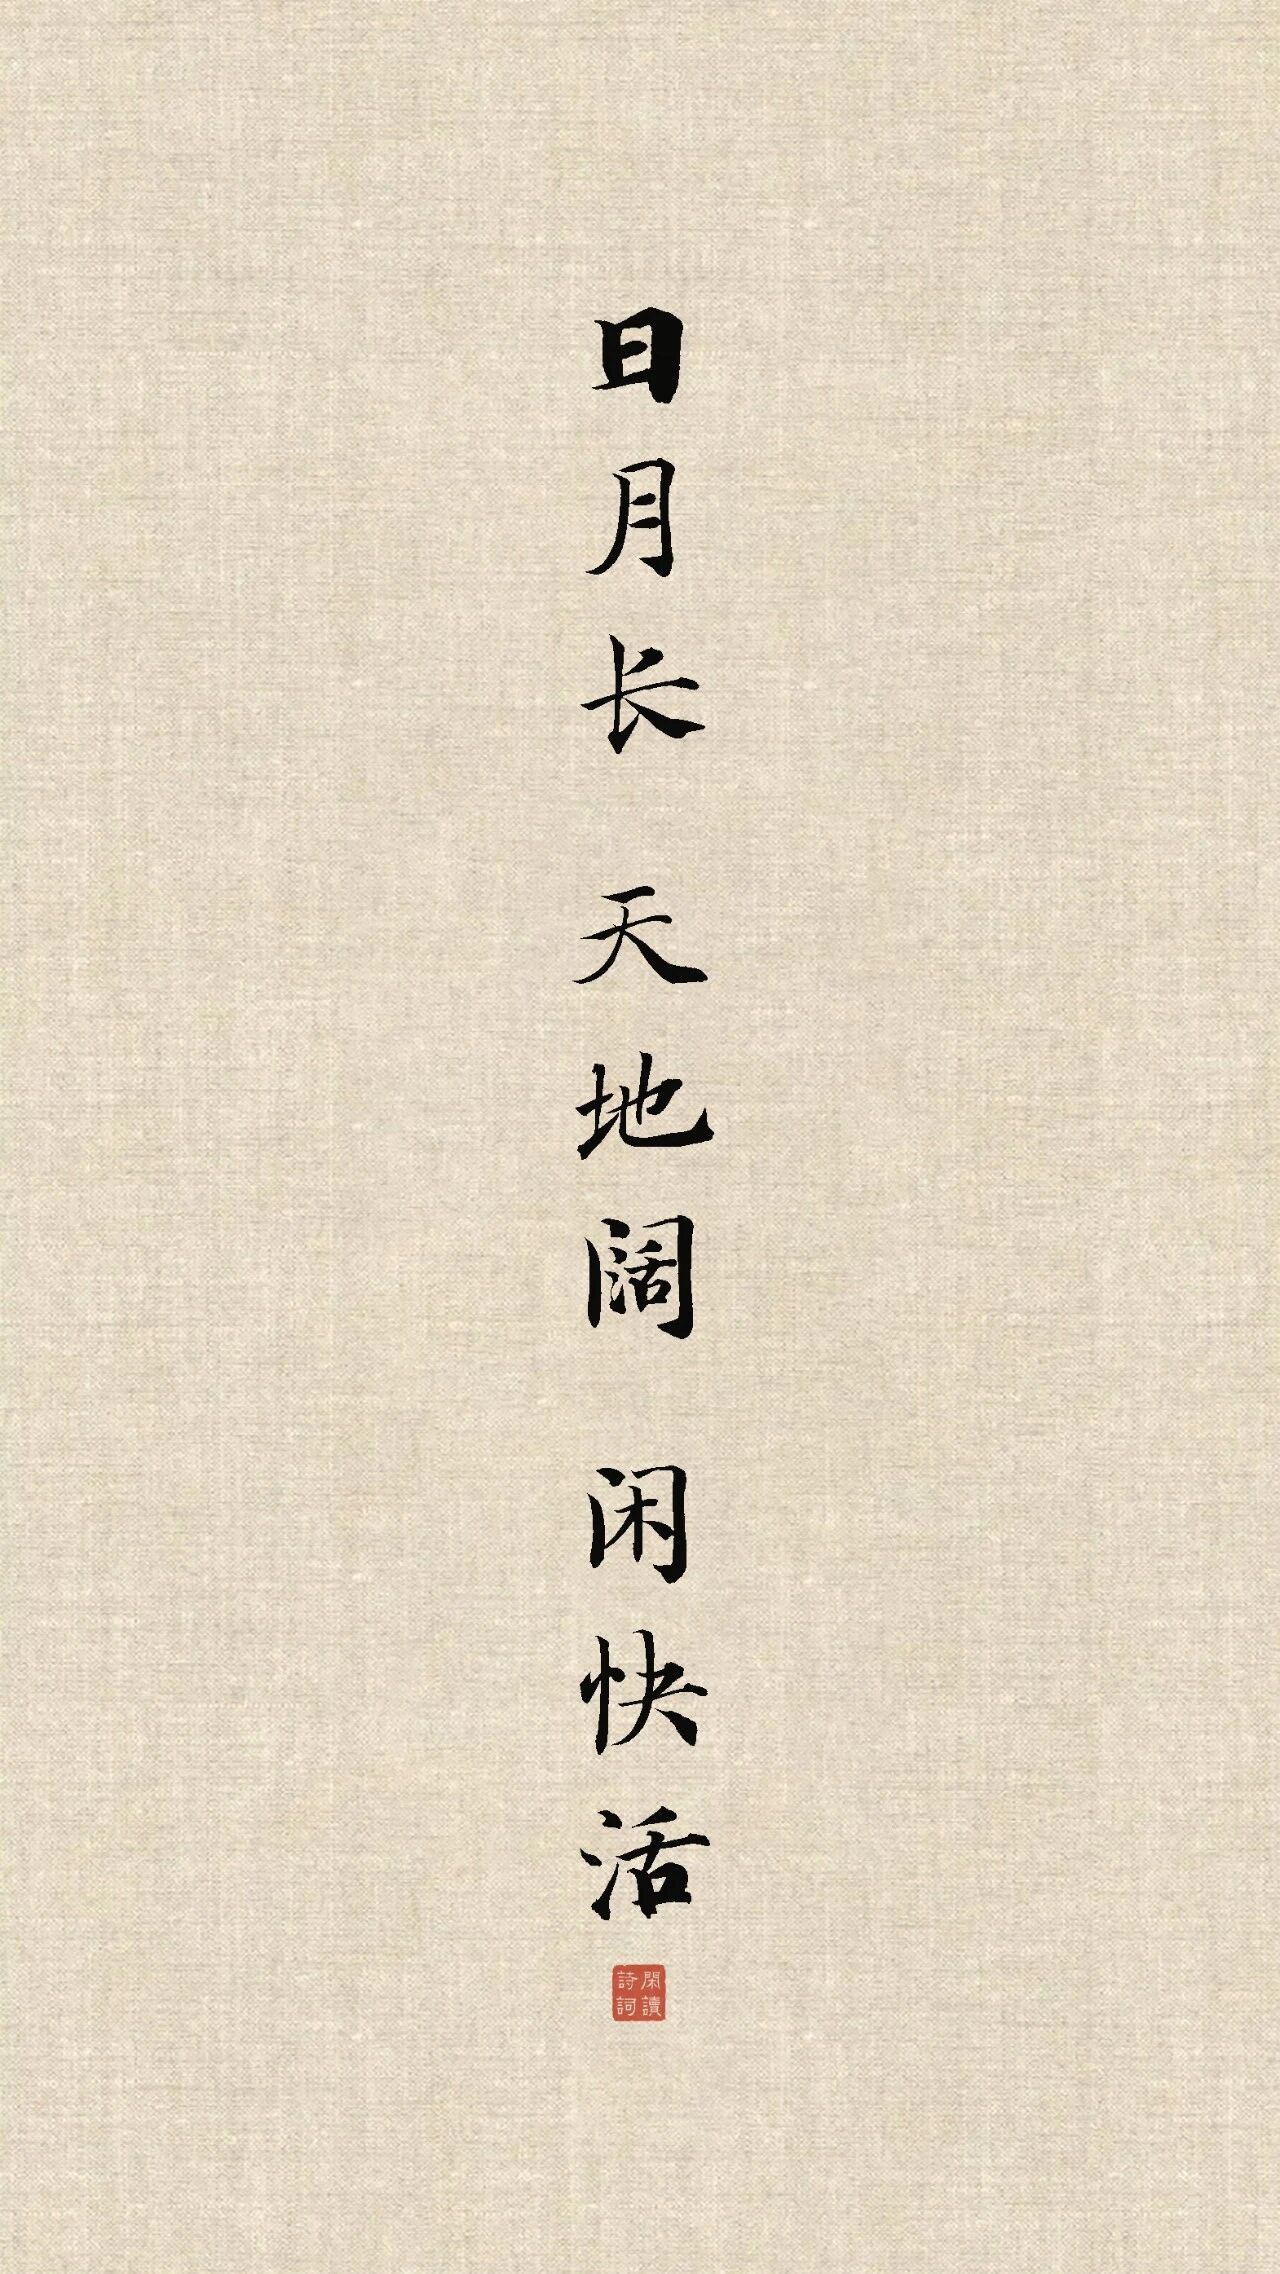 日月长 天地阔 闲快活
閑讀
詩詞